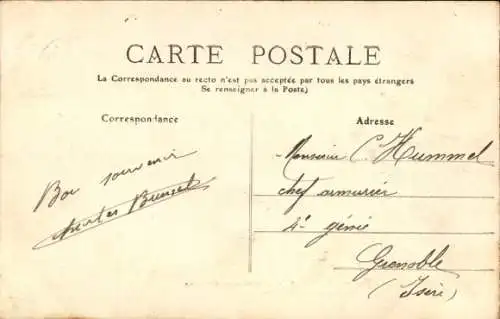 CARTE POSTALE
La Correspondance au recto n'est pas acceptée par tous les pays étrangers
Se renseigner à la Poste)
Correspondance
Adresse
Bon souvenir
Monsieur C. Hummel
chef armurier
4e génie
Grenoble
(Isère)